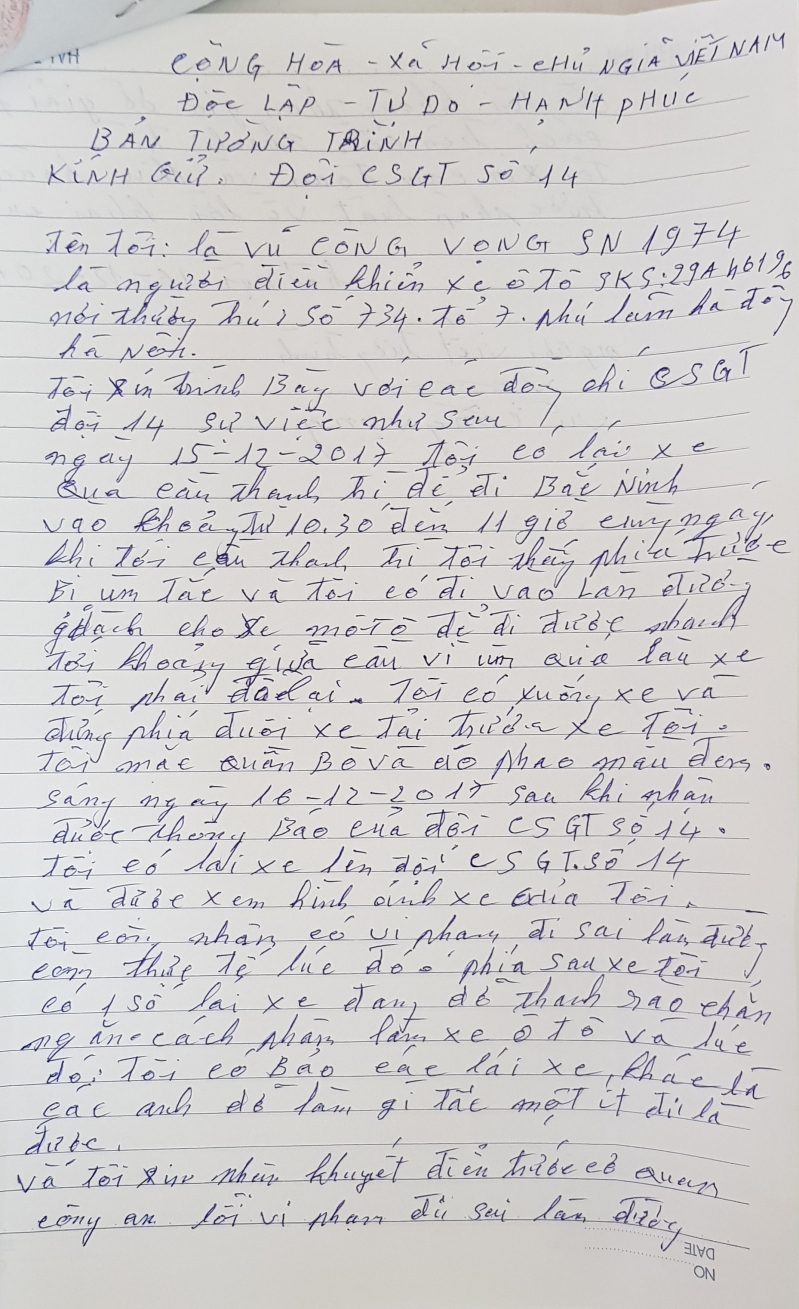 CỘNG HÒA - XÃ HỘI - CHỦ NGHĨA VIỆT NAM
ĐỘC LẬP - TỰ DO - HẠNH PHÚC
BẢN TƯỜNG TRÌNH
KÍNH GỬI. Đội CSGT Số 14
Tên tôi: là VŨ CÔNG VỌNG SN 1974
là người điều khiển xe ô tô BKS: 29A 46196
nơi thường trú: số 734. tổ 7. phú lãm hà đông
hà Nội.
Tôi xin trình Bày với các đồng chí CSGT
đội 14 sự việc như sau
ngày 15-12-2017 tôi có lái xe
Qua cầu thanh trì để đi Bắc Ninh
vào khoảng từ 10.30 đến 11 giờ cùng ngày,
khi tới cầu thanh trì tôi thấy phía trước
Bị ùn tắc và tôi có đi vào Làn đường
dành cho xe môtô để đi được nhanh
tới khoảng giữa cầu vì ùn quá lâu xe
tôi phải đỗ lại. Tôi có xuống xe và
đứng phía đuôi xe tải trước xe tôi.
tôi mặc quần Bò và áo phao màu đen.
sáng ngày 16-12-2017 sau khi nhận
được thông Báo của đội CSGT Số 14.
Tôi có lái xe lên đội CSGT. số 14
và được xem hình ảnh xe của Tôi.
tôi công nhận có vi phạm đi sai làn đường
còn thực tế lúc đó phía sau xe tôi
có 1 số lái xe đang dỡ thanh rào chắn
ngăn cách phần làn xe ô tô và lúc
đó: Tôi có Bảo các lái xe, khác là
các anh dỡ làm gì tắc một ít đi là
được.
và tôi xin nhận khuyết điểm trước cơ quan
công an lỗi vi phạm đi sai làn đường
NO
DATE